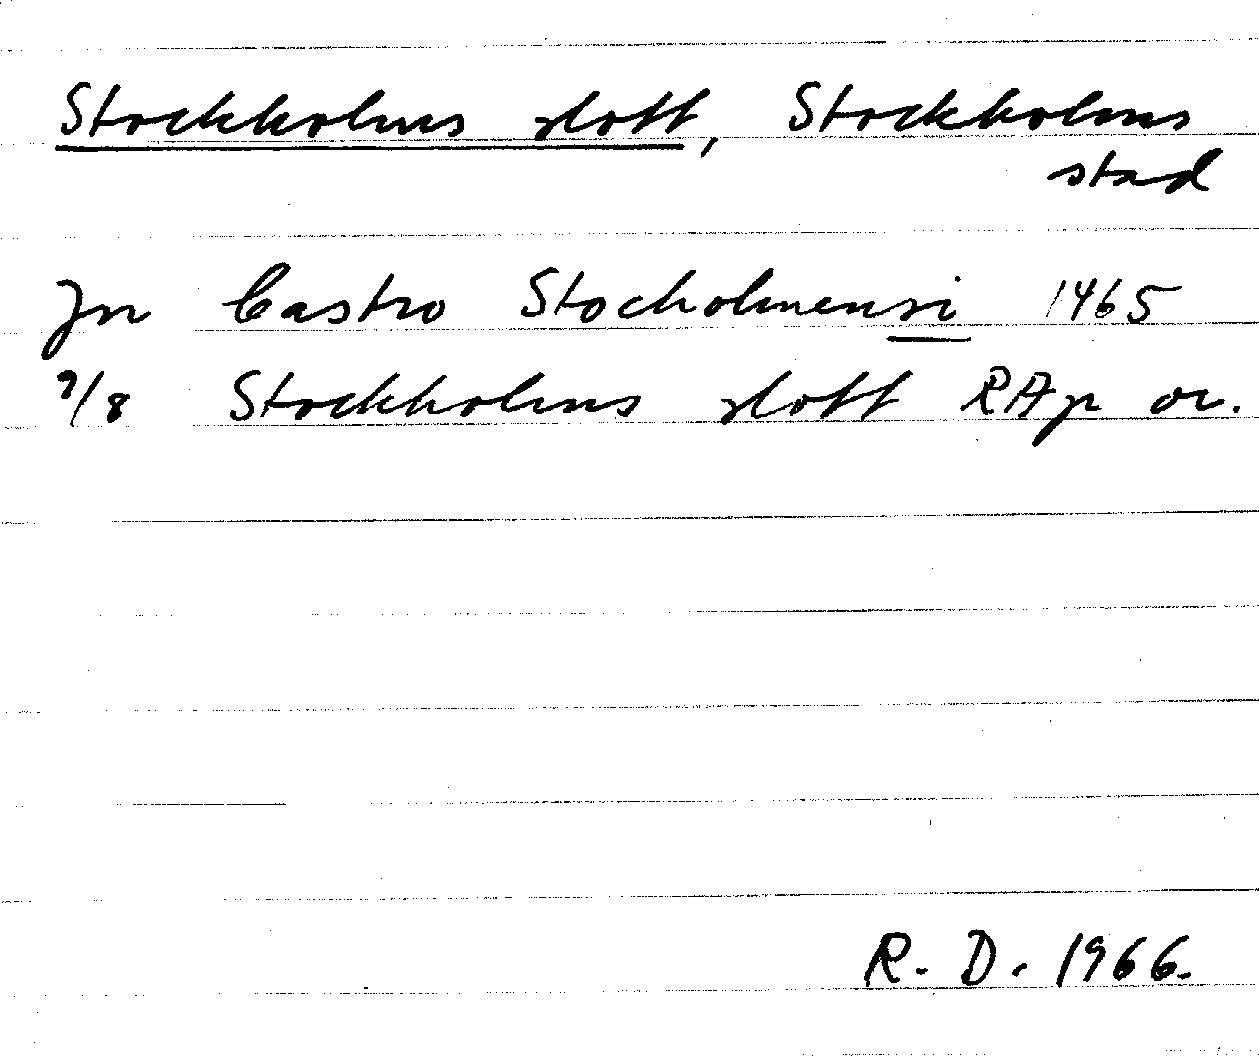 Stockholms slott, Stockholms
stad
Jn Castro Stocholmensi 1465
9/8 Stockholms slott RAp or.
R. D. 1966.